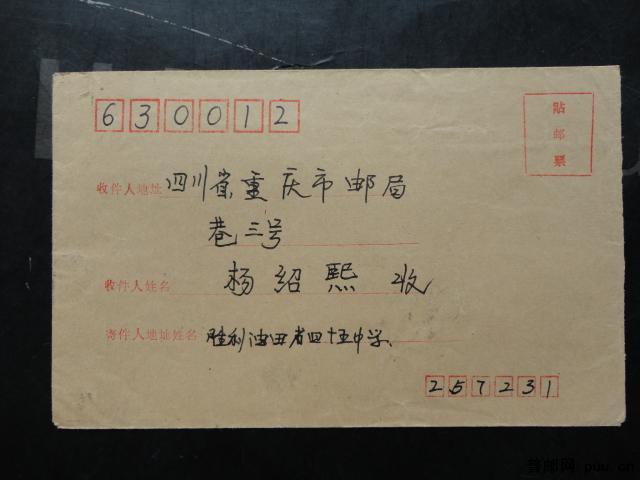 630012
貼
邮
票
收件人地址 四川省重庆市邮局
巷三号
收件人姓名 杨绍熙 收
寄件人地址姓名 胜利油田省四十五中学、
257231
普邮网 puu.cn